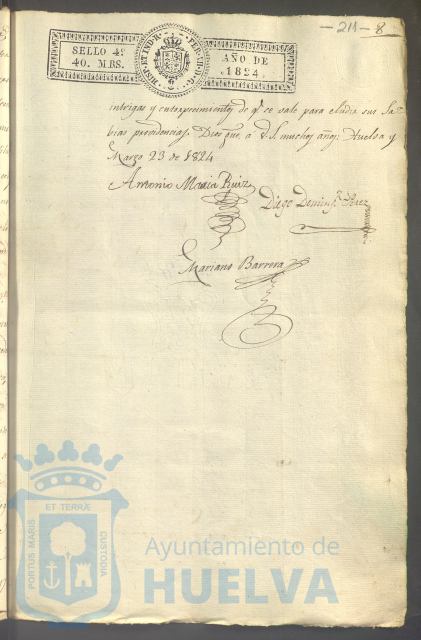 -211- 8
SELLO 4º
40. MRS.
AÑO DE
1824.
HISP. ET IND. R.
intrigas y entorpecimientos de q.e se vale para eludir sus Sa-
bias providencias. Dios gue. a V.S. muchos años. Huelva y
Marzo 23 de 1824
Antonio Maria Ruiz
Diego Doming.z Perez
Mariano Barrera
ET TERRÆ
PORTUS MARIS
CUSTODIA
Ayuntamiento de
HUELVA